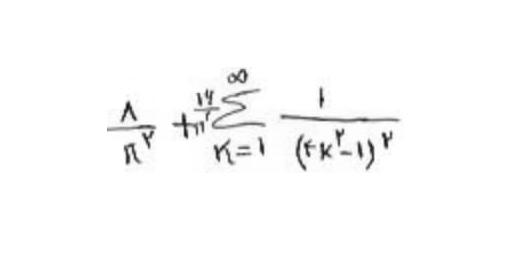 ۸/π^۲ + ۱۶/π^۲ ∑_{K=۱}^{∞} ۱/(۴K^۲-۱)^۲